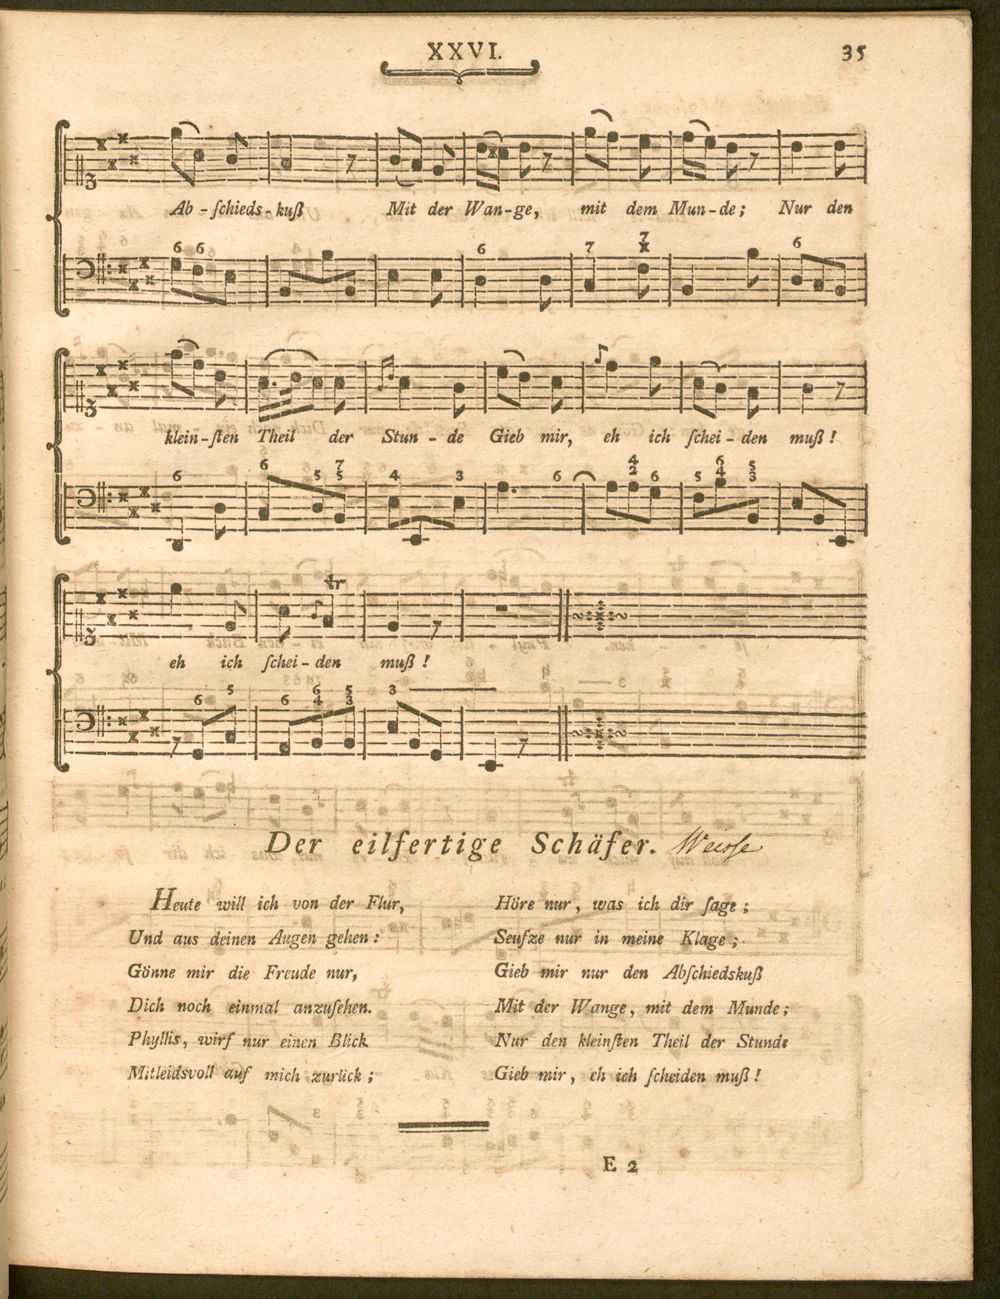 XXVI.
35
Ab - ſchieds - kuß Mit der Wan - ge, mit dem Mun - de; Nur den
6 6 6 7 7 6
klein - ſten Theil der Stun - de Gieb mir, eh ich ſchei - den muß!
6 6 5 7 5 4 3 6 4 2 6 5 6 4 5 3
eh ich ſchei - den muß!
6 5 6 6 4 5 3 3
Der eilfertige Schäfer. Weisse
Heute will ich von der Flur,
Und aus deinen Augen gehen:
Gönne mir die Freude nur,
Dich noch einmal anzuſehen.
Phyllis, wirf nur einen Blick
Mitleidsvoll auf mich zurück;
Höre nur, was ich dir ſage;
Seufze nur in meine Klage;
Gieb mir nur den Abſchiedskuß
Mit der Wange, mit dem Munde;
Nur den kleinſten Theil der Stunde
Gieb mir, eh ich ſcheiden muß!
E 2